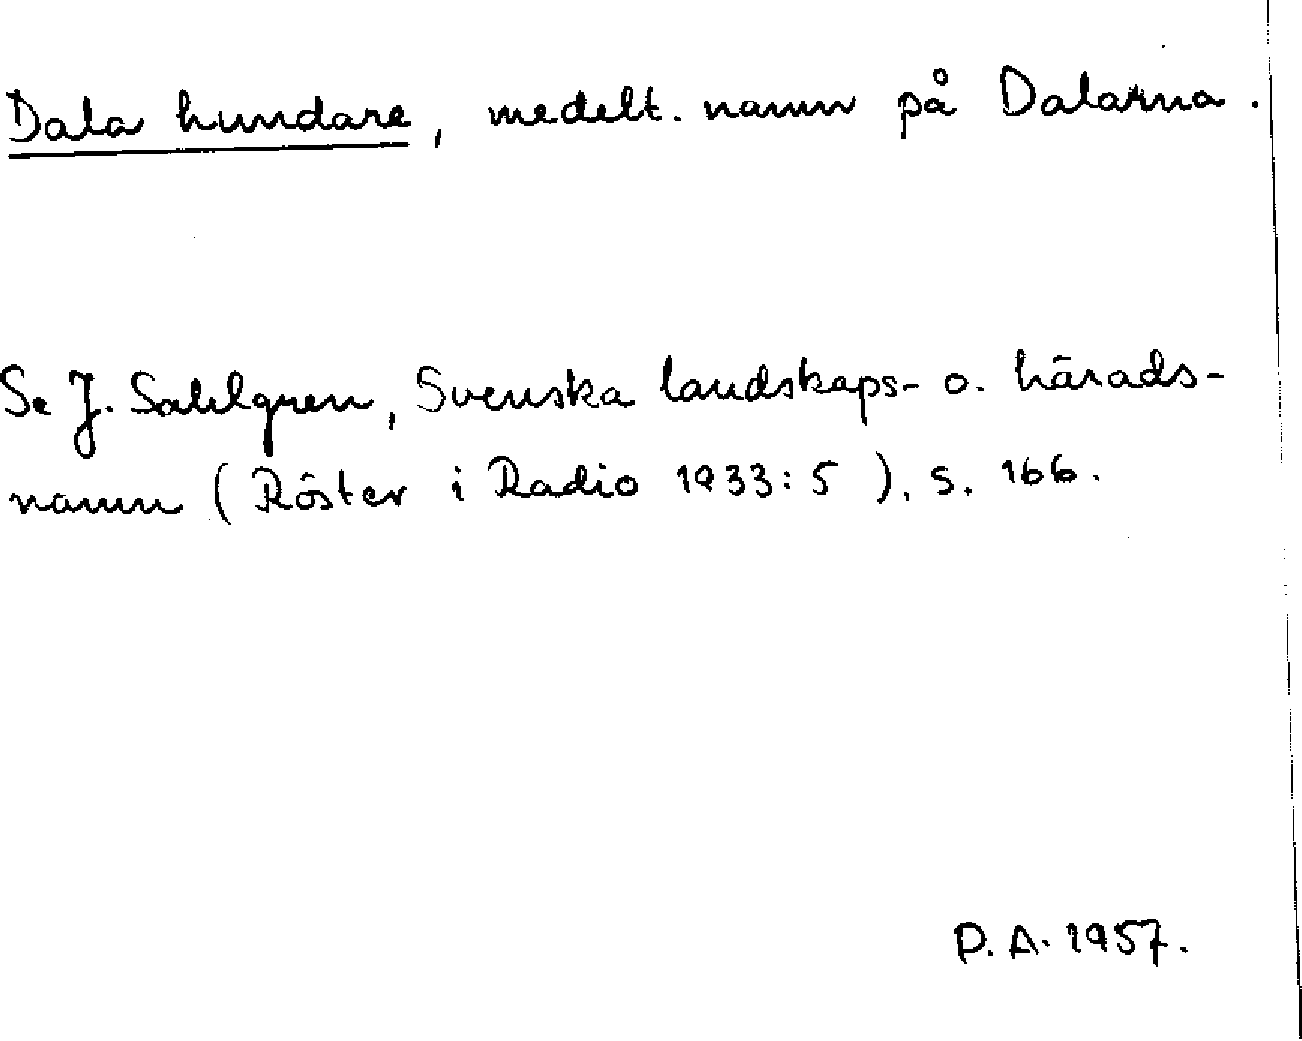 Dala hundare, medelt. namn på Dalarna.
Se J. Sahlgren, Svenska landskaps- o. härads-
namn (Röster i Radio 1933:5), s. 166.
P. A. 1957.